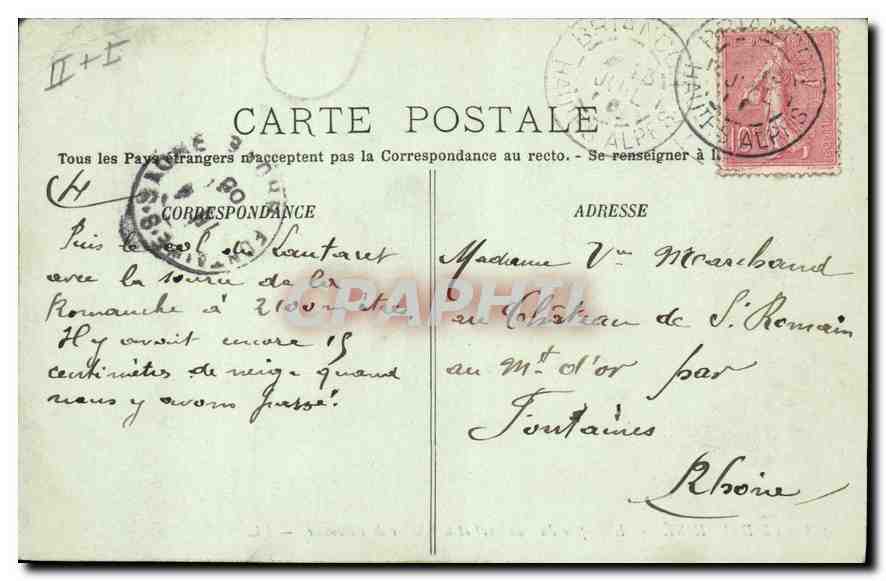 II + I
BRIANÇON
13
JUIL
HAUTES ALPES
BRIANÇON
JUIL
HAUTES ALPES
10
CARTE POSTALE
Tous les Pays étrangers n'acceptent pas la Correspondance au recto. - Se renseigner à la
4
FONTAINES-S-SAONE
08
CORRESPONDANCE
Puis le col du Lautaret
avec la source de la
Romanche à 2100 mètres
Il y avait encore 15
centimètres de neige quand
nous y avons passé.
ADRESSE
Madame Vve Marchand
au Château de St Romain
au Mt d'or par
Fontaines
Rhône
CPAPHIL